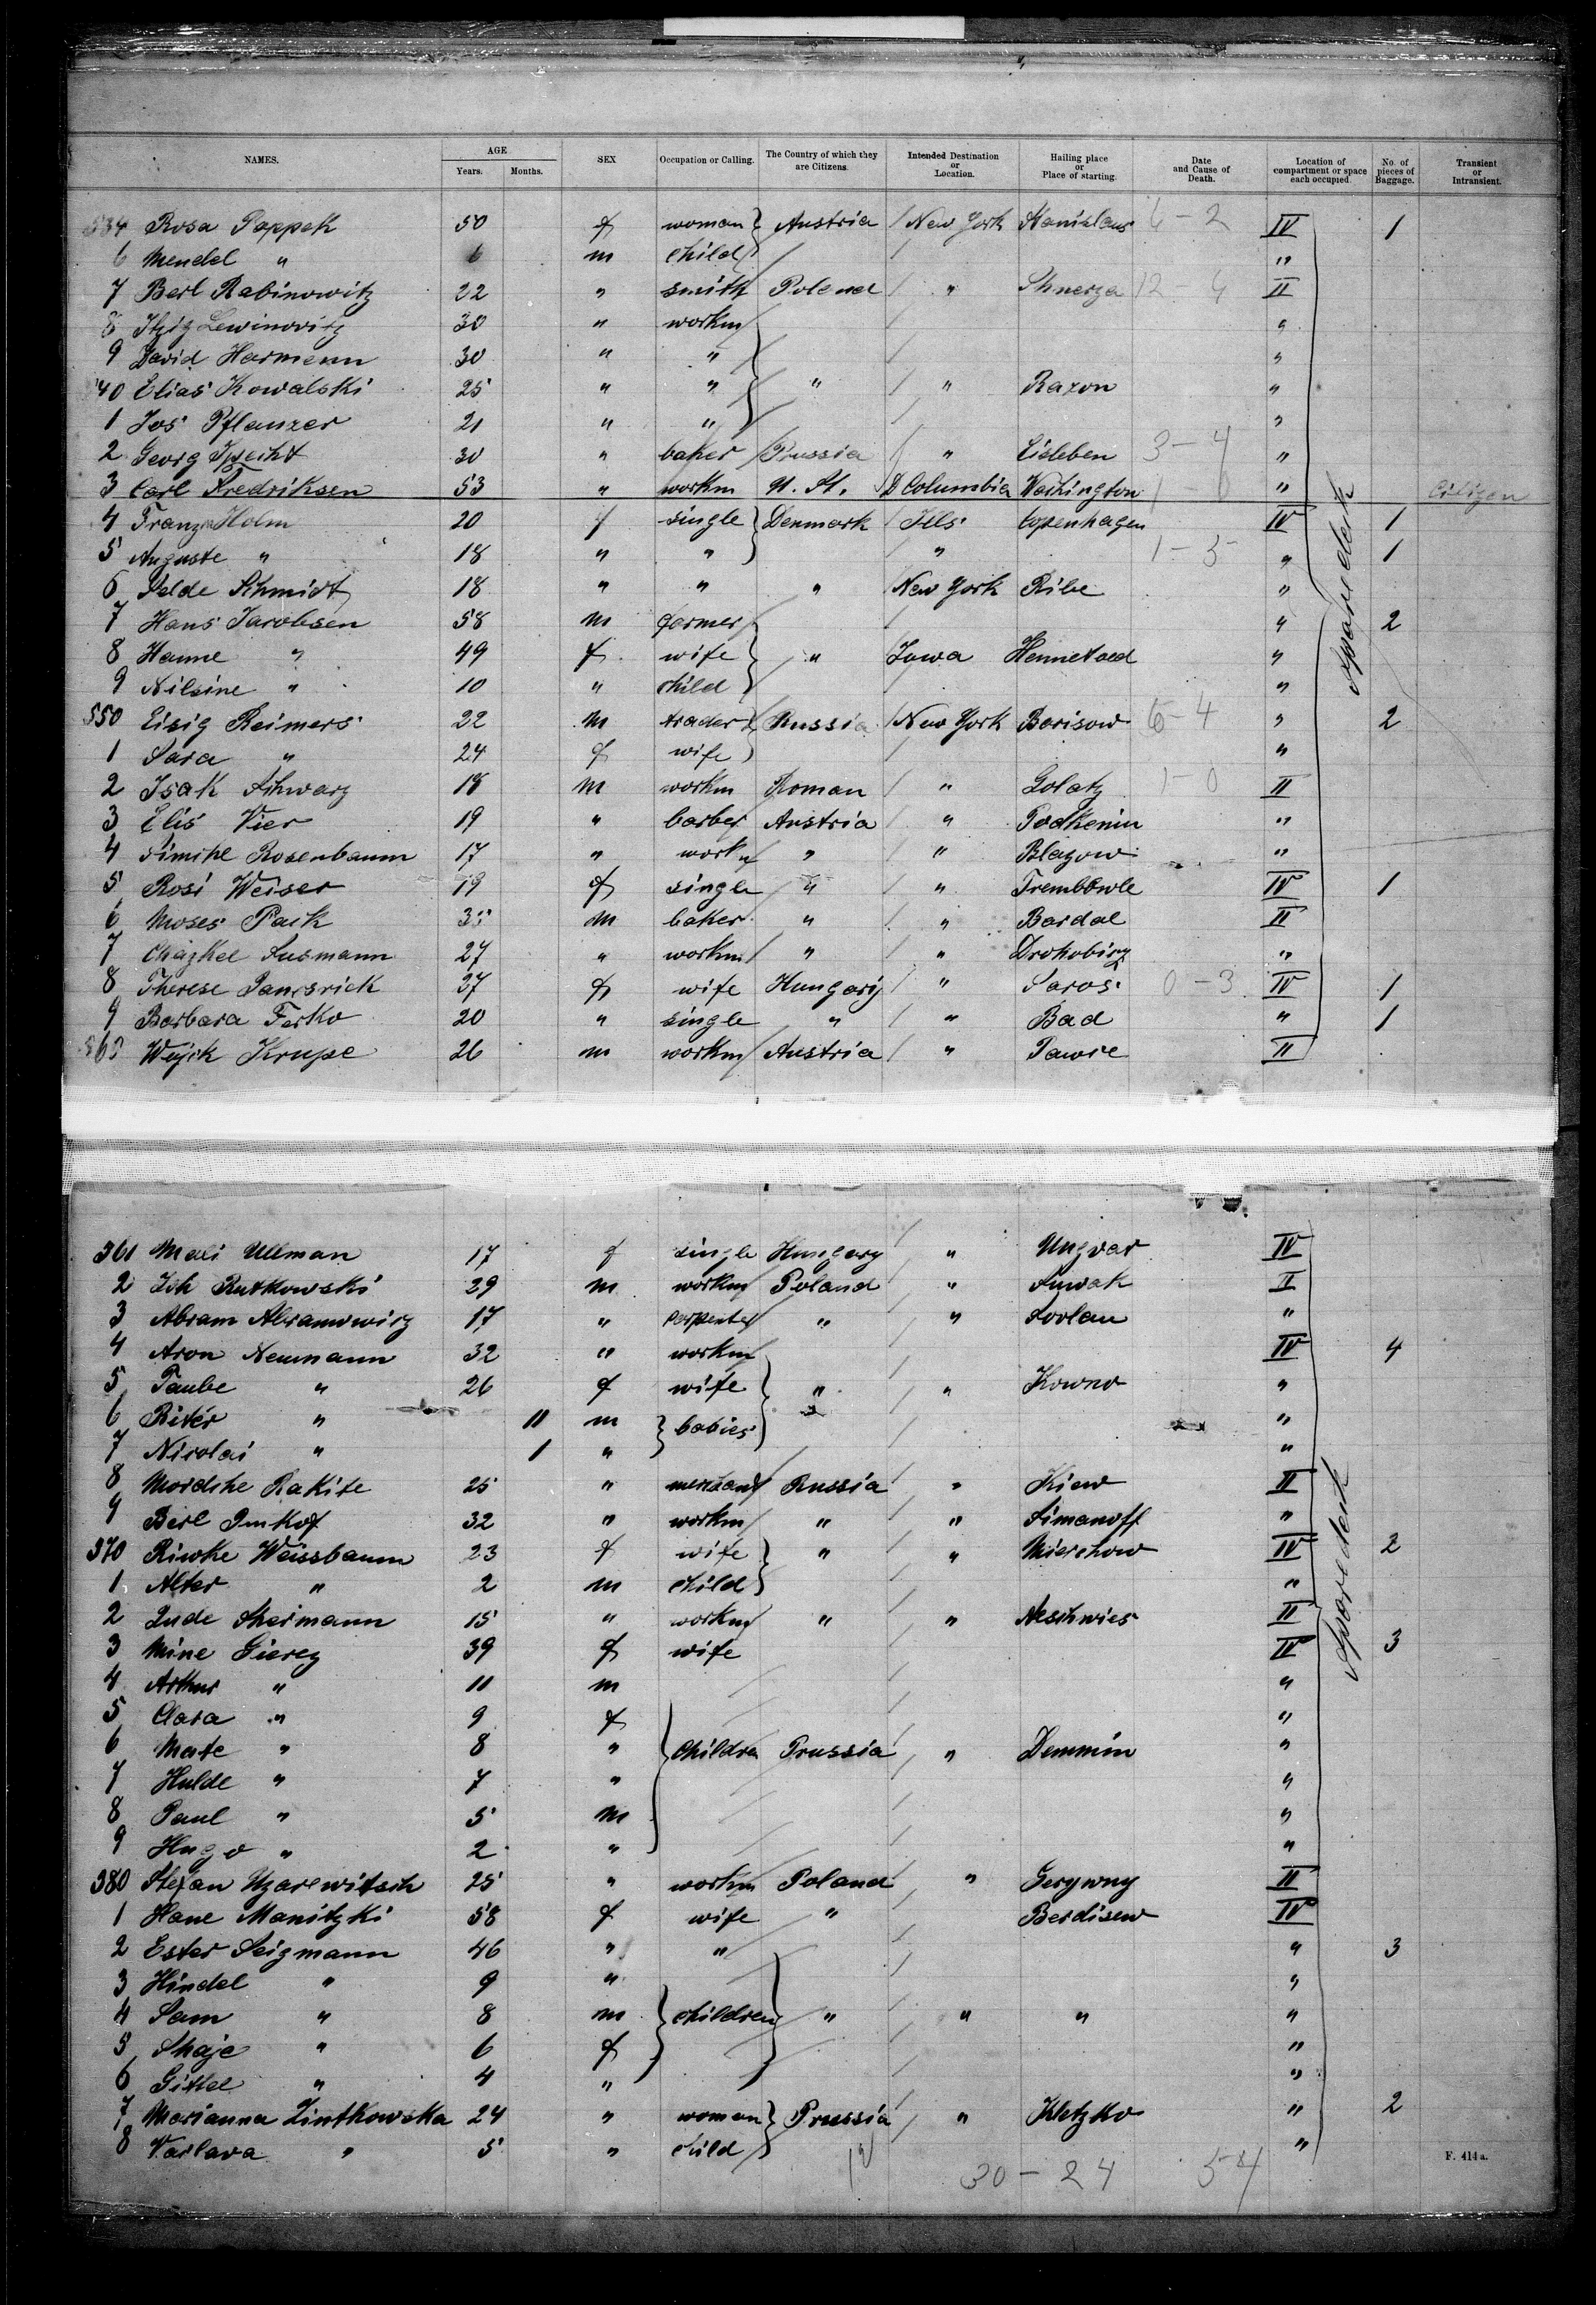 NAMES. AGE SEX Occupation or Calling. The Country of which they are Citizens. Intended Destination or Location. Hailing place or Place of starting. Date and Cause of Death. Location of compartment or space each occupied. No. of pieces of Baggage. Transient or Intransient.
Years. Months.
534 Rosa Poppek 50 f woman Austria New York Stanislaus 6 - 2 IV 1
6 Mendel " 6 m child "
7 Berl Rabinowitz 22 " smith Poland " 12 - 4 II
8 Itzig Lewinovirz 30 " workm "
9 David Harmenn 30 " " "
40 Elias Kowalski 25 " " " " Razon "
1 Jos Pflanzer 21 " " "
2 Georg Specht 30 " baker Prussia " Eisleben 3 - 4 "
3 Carl Fredriksen 53 " workm U. St. D Columbia Washington 1 0 " Citizen
4 Franza Holm 20 f single Denmark Ills Copenhagen IV 1
5 Auguste " 18 " " " 1 - 5 " 1
6 Schmidt 18 " " " New York Ribe "
7 Hans Jacobsen 58 m farmer " 2
8 Hanne " 49 f wife " Iowa "
9 Nilsine " 10 " child "
550 Eisig Reimers 22 m trader Russia New York Borisow 6 - 4 " 2
1 Sara " 24 f wife "
2 Isak Schwarz 18 m workm Roman " Golatz 1 - 0 II
3 Elis Vier 19 " barber Austria " Podkenin "
4 Simche Rosenbaum 17 " workm " " Blazow "
5 Rosi Weiser 19 f single " " Trembowle IV 1
6 Moses Paik 35 m baker " " Bardal II
7 Chazkel Susmann 27 " workm " " Drohobirz "
8 Therese 37 f wife Hungary " Saros 0 - 3 IV 1
9 Barbara Ferko 20 " single " " Bad " 1
560 Wojck Krupe 26 m workm Austria " Pawie II
Apparedeck
361 Mali Ullman 17 f single Hungary " Ungvar IV
2 Joh Rutkowski 29 m workm Poland " Suwak II
3 Abram Abramowirz 17 " carpenter " " "
4 Aron Neumann 32 " workm IV 4
5 Taube " 26 f wife " " Kowno "
6 " 11 m babies "
7 Nicolai " 1 " "
8 Mordche Rakite 25 " merchant Russia " Kiew II
9 Berl 32 " workm " " Simanoff "
370 Riwke Weissbaum 23 f wife " " Mierchow IV 2
1 Alter " 2 m child "
2 Jude Shermann 15 " workm " " Neschwies II
3 Mine Gierez 39 f wife IV 3
4 Arthur " 11 m "
5 Clara " 9 f "
6 Mate " 8 " children Prussia " Demmin "
7 Hulde " 7 " "
8 Paul " 5 m "
9 Hugo " 2 " "
380 Stefan Uzarewitsch 25 " workm Poland " II
1 Hane Manitzki 58 f wife " Berdisew IV
2 Ester Seizmann 46 " " " 3
3 Hindel " 9 " "
4 Sam " 8 m children " " " "
5 Shaje " 6 f "
6 Gittel " 4 " "
7 Marianna Zintkowska 24 " woman Prussia " Kletzko " 2
8 Varlava " 5 " child "
30 - 24 54
F. 414a.